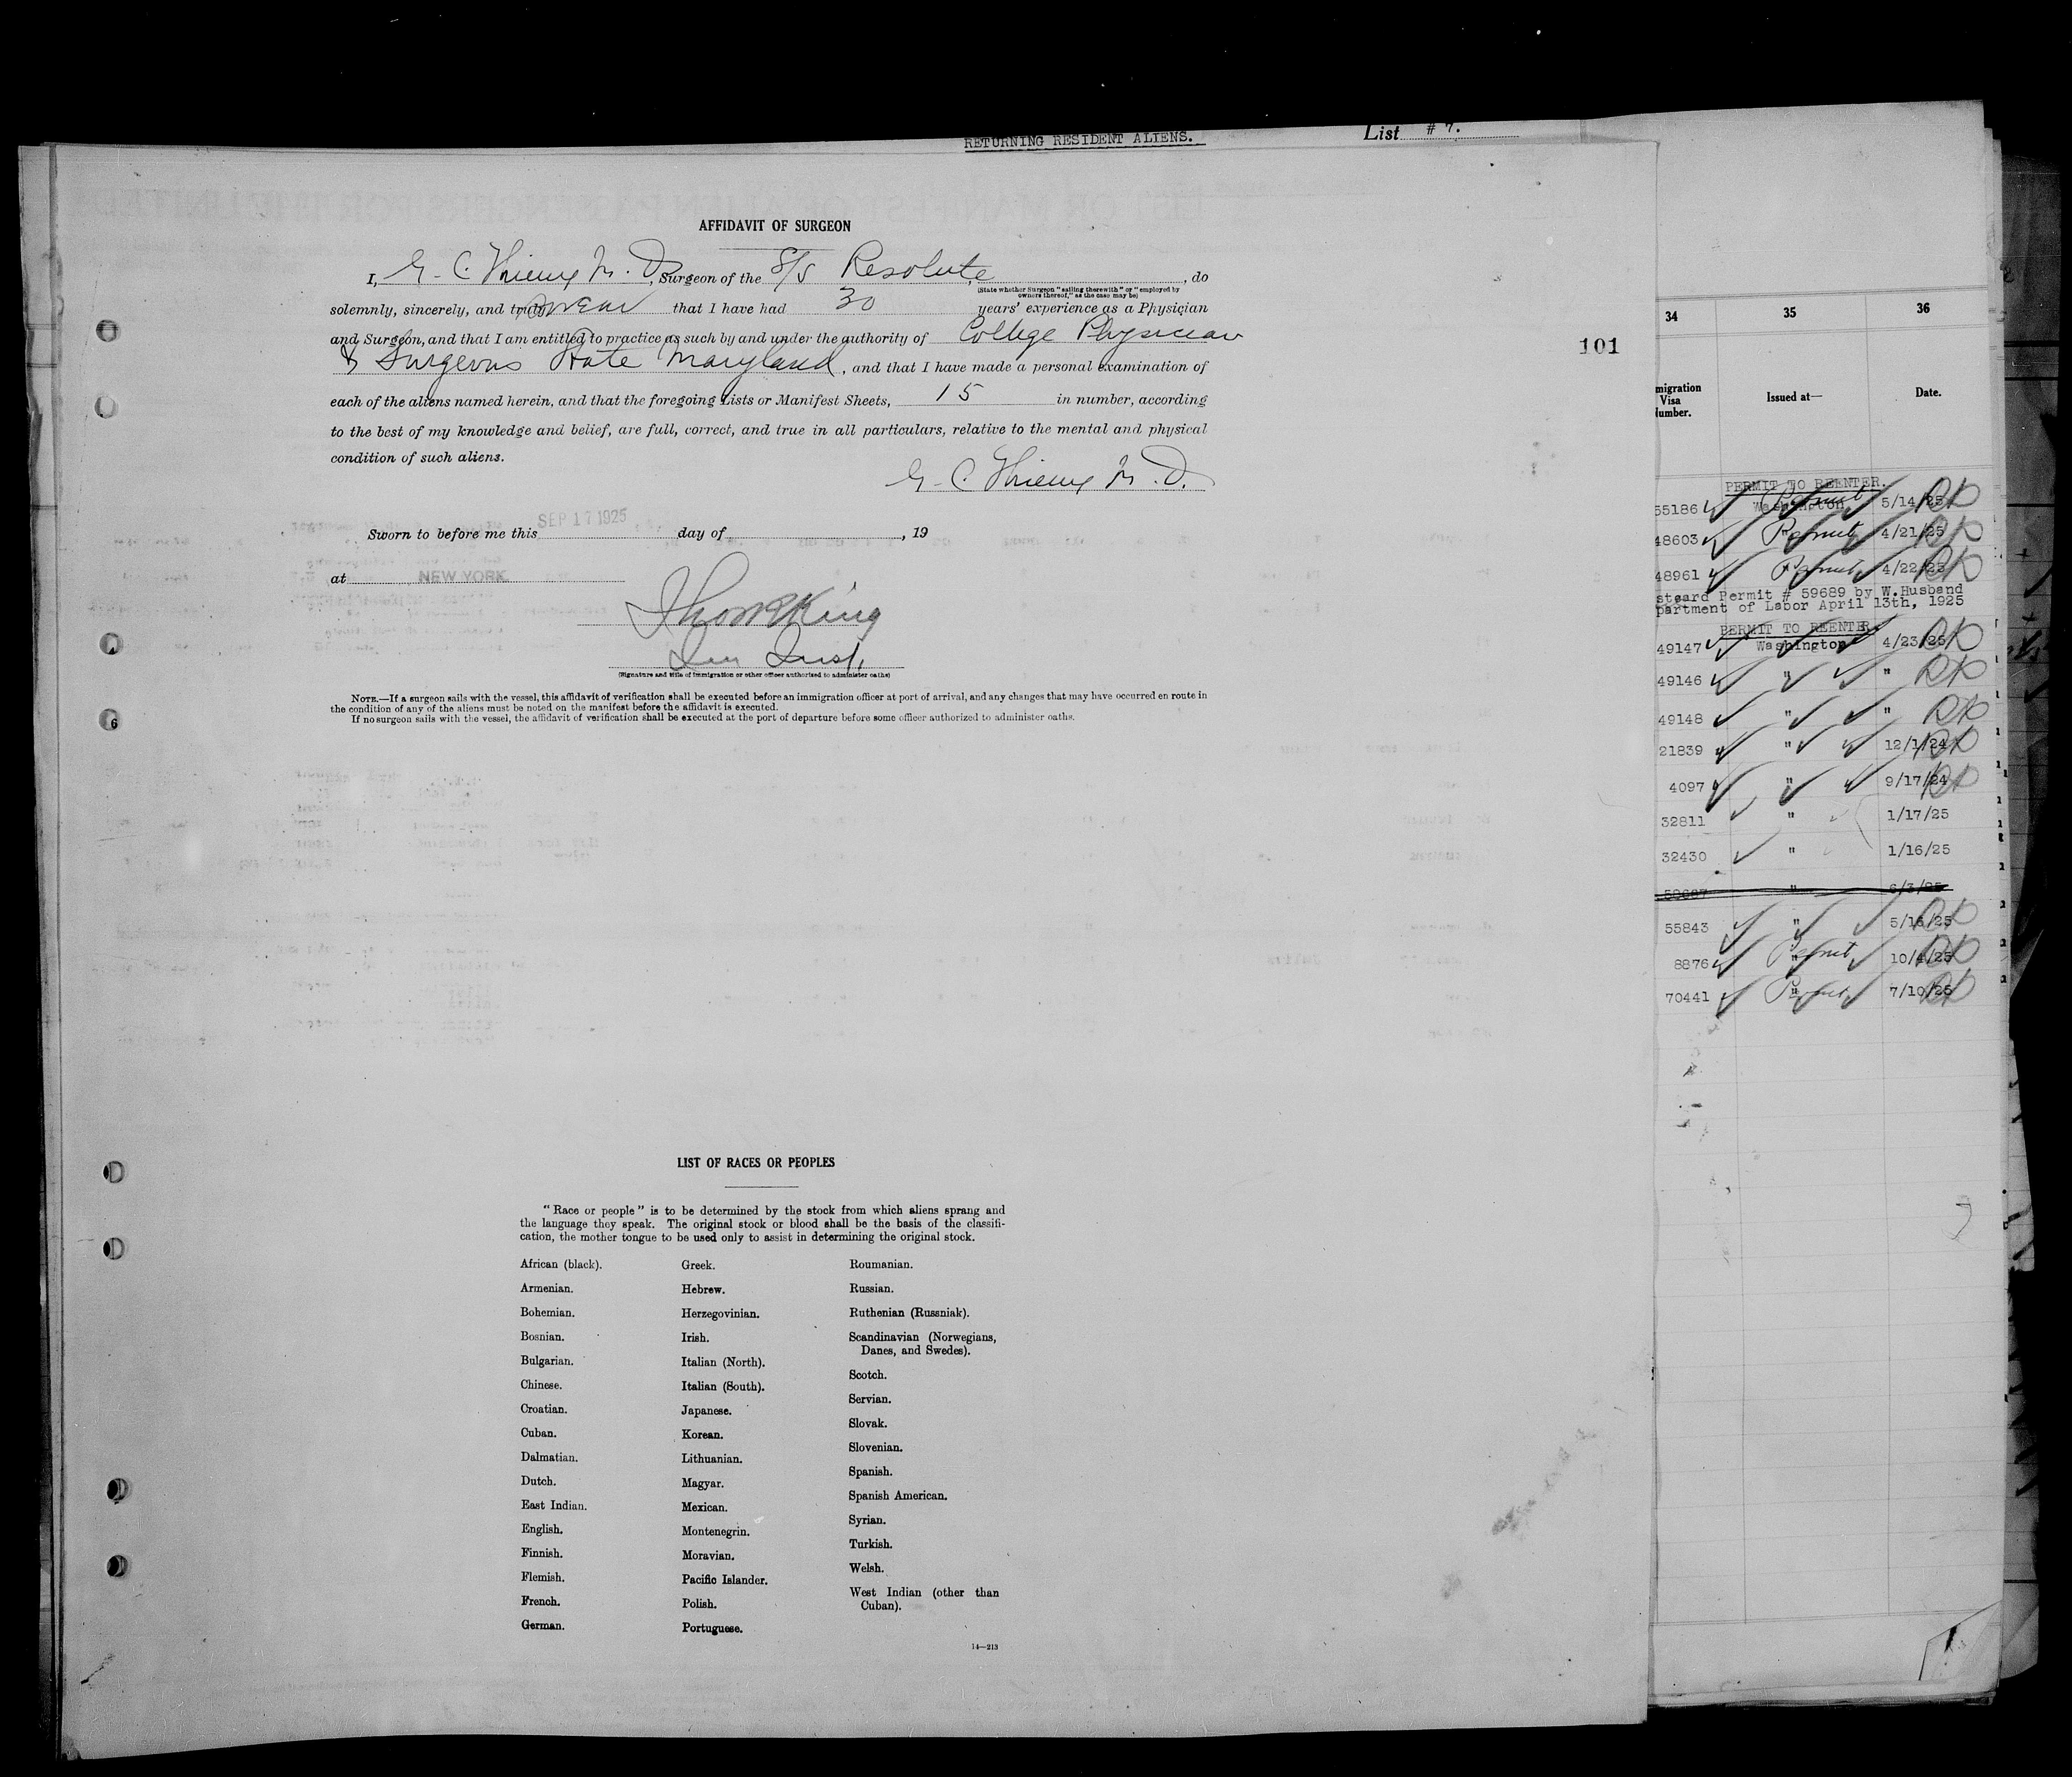 RETURNING RESIDENT ALIENS.
List # 7.
AFFIDAVIT OF SURGEON
I, G. C. Thieme M. D., Surgeon of the S/S Resolute, , do
(State whether Surgeon "sailing therewith" or "employed by
owners thereof," as the case may be)
solemnly, sincerely, and truly swear that I have had 30 years' experience as a Physician
and Surgeon, and that I am entitled to practice as such by and under the authority of College Physician
& Surgeons State Maryland, and that I have made a personal examination of
each of the aliens named herein, and that the foregoing Lists or Manifest Sheets, 15 in number, according
to the best of my knowledge and belief, are full, correct, and true in all particulars, relative to the mental and physical
condition of such aliens.
G. C. Thieme M. D.
Sworn to before me this SEP 17 1925 day of , 19
at NEW YORK
Thos R King
Imm Insp.
(Signature and title of immigration or other officer authorized to administer oaths)
NOTE.—If a surgeon sails with the vessel, this affidavit of verification shall be executed before an immigration officer at port of arrival, and any changes that may have occurred en route in
the condition of any of the aliens must be noted on the manifest before the affidavit is executed.
If no surgeon sails with the vessel, the affidavit of verification shall be executed at the port of departure before some officer authorized to administer oaths.
6
LIST OF RACES OR PEOPLES
"Race or people" is to be determined by the stock from which aliens sprang and
the language they speak. The original stock or blood shall be the basis of the classifi-
cation, the mother tongue to be used only to assist in determining the original stock.
African (black).
Armenian.
Bohemian.
Bosnian.
Bulgarian.
Chinese.
Croatian.
Cuban.
Dalmatian.
Dutch.
East Indian.
English.
Finnish.
Flemish.
French.
German.
Greek.
Hebrew.
Herzegovinian.
Irish.
Italian (North).
Italian (South).
Japanese.
Korean.
Lithuanian.
Magyar.
Mexican.
Montenegrin.
Moravian.
Pacific Islander.
Polish.
Portuguese.
Roumanian.
Russian.
Ruthenian (Russniak).
Scandinavian (Norwegians,
Danes, and Swedes).
Scotch.
Servian.
Slovak.
Slovenian.
Spanish.
Spanish American.
Syrian.
Turkish.
Welsh.
West Indian (other than
Cuban).
14—213
101
34 35 36
migration
Visa
Number.
Issued at—
Date.
PERMIT TO REENTER.
55186 Washington Permit 5/14/25
48603 " Permit 4/21/25
48961 " Permit 4/22/25
steard Permit # 59689 by W.Husband
partment of Labor April 13th, 1925
PERMIT TO REENTER
49147 Washington 4/23/25
49146 " "
49148 " "
21839 " 12/1/24
4097 " 9/17/24
32811 " 1/17/25
32430 " 1/16/25
" 6/3/25
55843 " 5/16/25
8876 " Permit 10/4/25
70441 " Permit 7/10/25